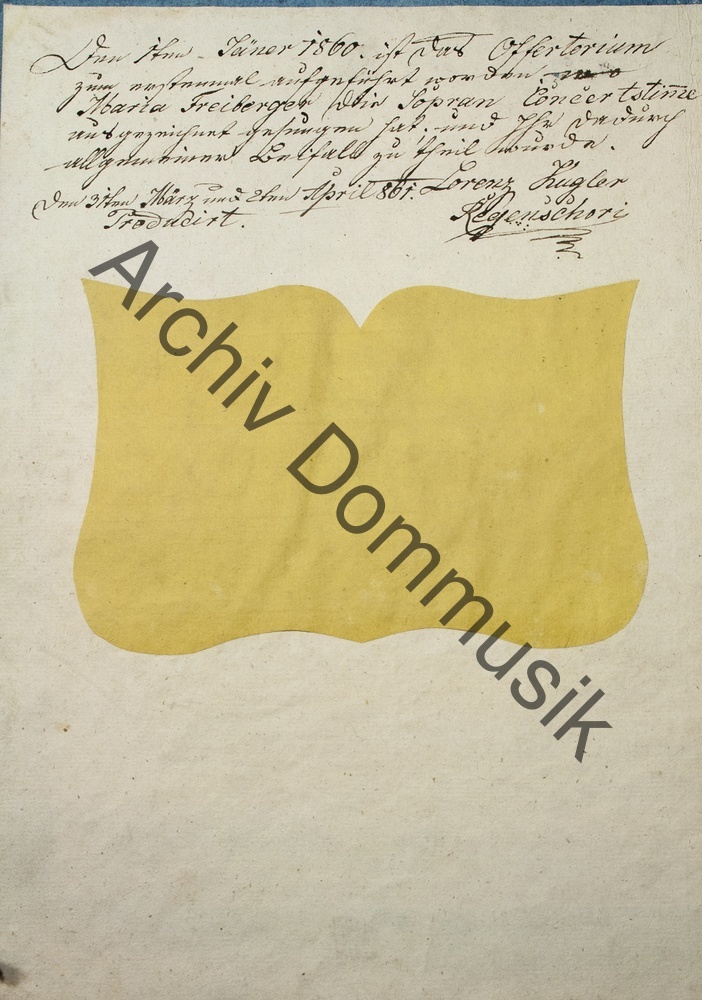 Den 1ten Jäner 1860. ist das Offertorium
zum erstenmal aufgeführt worden. wo
Maria Freiberger die Sopran Concertstim̄e
ausgezeichnet gesungen hat. und Ihr dadurch
allgemeiner Beifall zu theil wurde.
Lorenz Kugler
Regenschori
Den 31ten März und 2ten April 861.
Producirt.
Archiv Dommusik